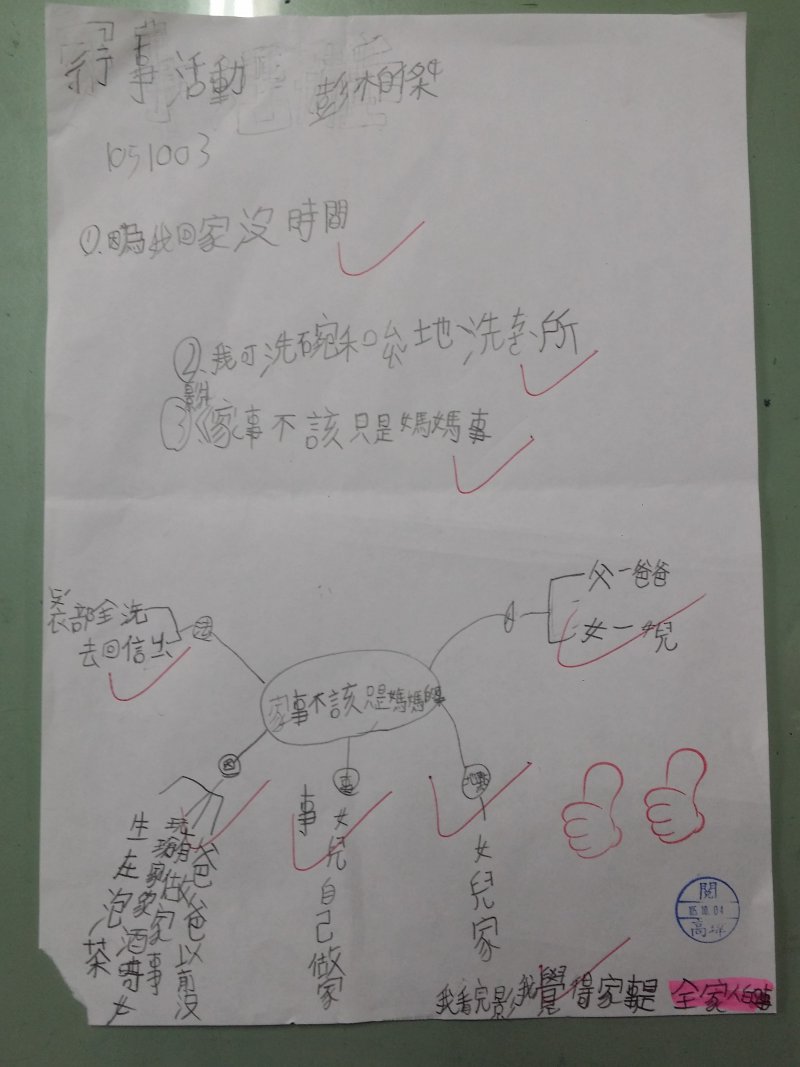 家事活動 彭柏傑
1051003
①.因為我回家沒時間
②.我可洗碗和
地洗
所
③
家事不該只是媽媽事
家事不該只是媽媽的事
人
父一爸爸
女一女兒
地點
女兒家
事
女兒自己做家
事
因
爸爸以前沒
做家事
生在泡
茶
法
衣部全洗
去回信出
我看完影我覺得家事是 全家人的事
閱
105.10.04